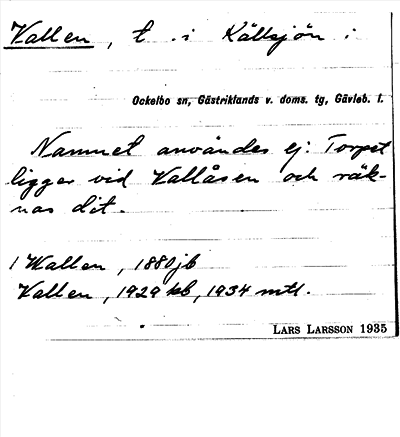 Vallen, t. i Källsjön i
Ockelbo sn, Gästriklands v. doms. tg, Gävleb. l.
Namnet användes ej. Torpet
ligger vid Vallåsen och räk-
nas dit.
1 Wallen, 1880 jb
Vallen, 1929 kb, 1934 mtl.
LARS LARSSON 1935